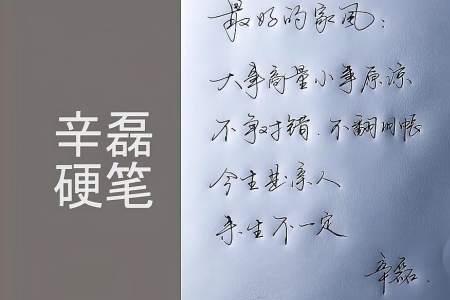 辛磊
硬笔
最好的家风:
大事商量小事原谅
不争对错.不翻旧帐
今生是亲人
来生不一定
辛磊.